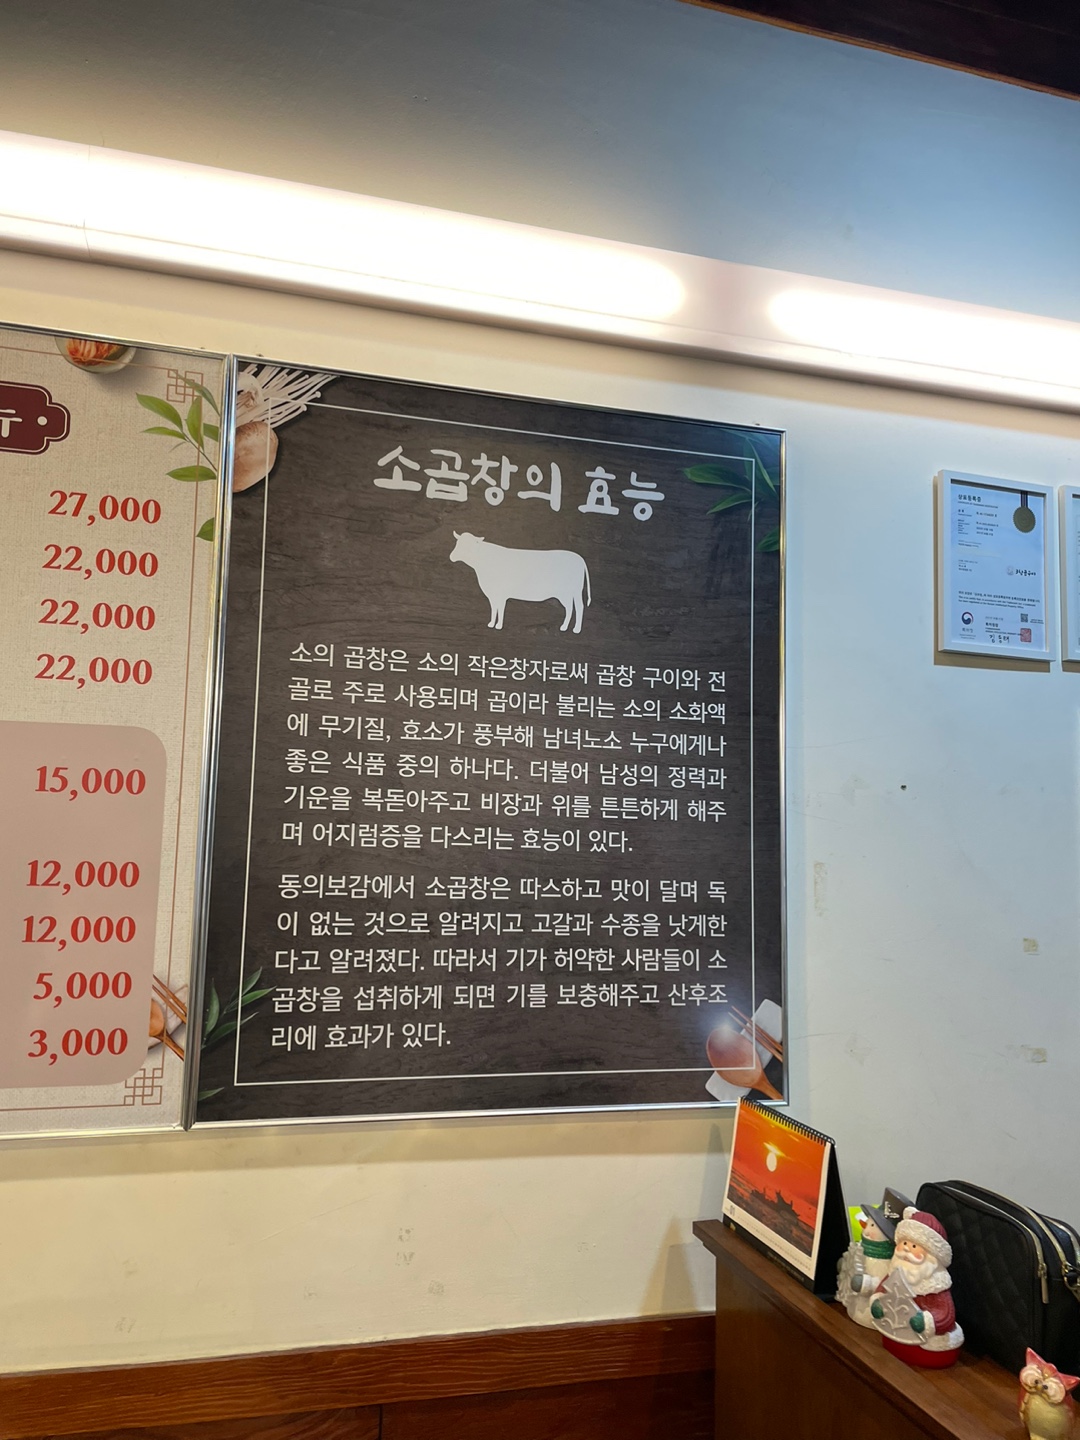 27,000
22,000
22,000
22,000
15,000
12,000
12,000
5,000
3,000
소곱창의 효능
소의 곱창은 소의 작은창자로써 곱창 구이와 전
골로 주로 사용되며 곱이라 불리는 소의 소화액
에 무기질, 효소가 풍부해 남녀노소 누구에게나
좋은 식품 중의 하나다. 더불어 남성의 정력과
기운을 복돋아주고 비장과 위를 튼튼하게 해주
며 어지럼증을 다스리는 효능이 있다.
동의보감에서 소곱창은 따스하고 맛이 달며 독
이 없는 것으로 알려지고 고갈과 수종을 낫게한
다고 알려졌다. 따라서 기가 허약한 사람들이 소
곱창을 섭취하게 되면 기를 보충해주고 산후조
리에 효과가 있다.
상표등록증